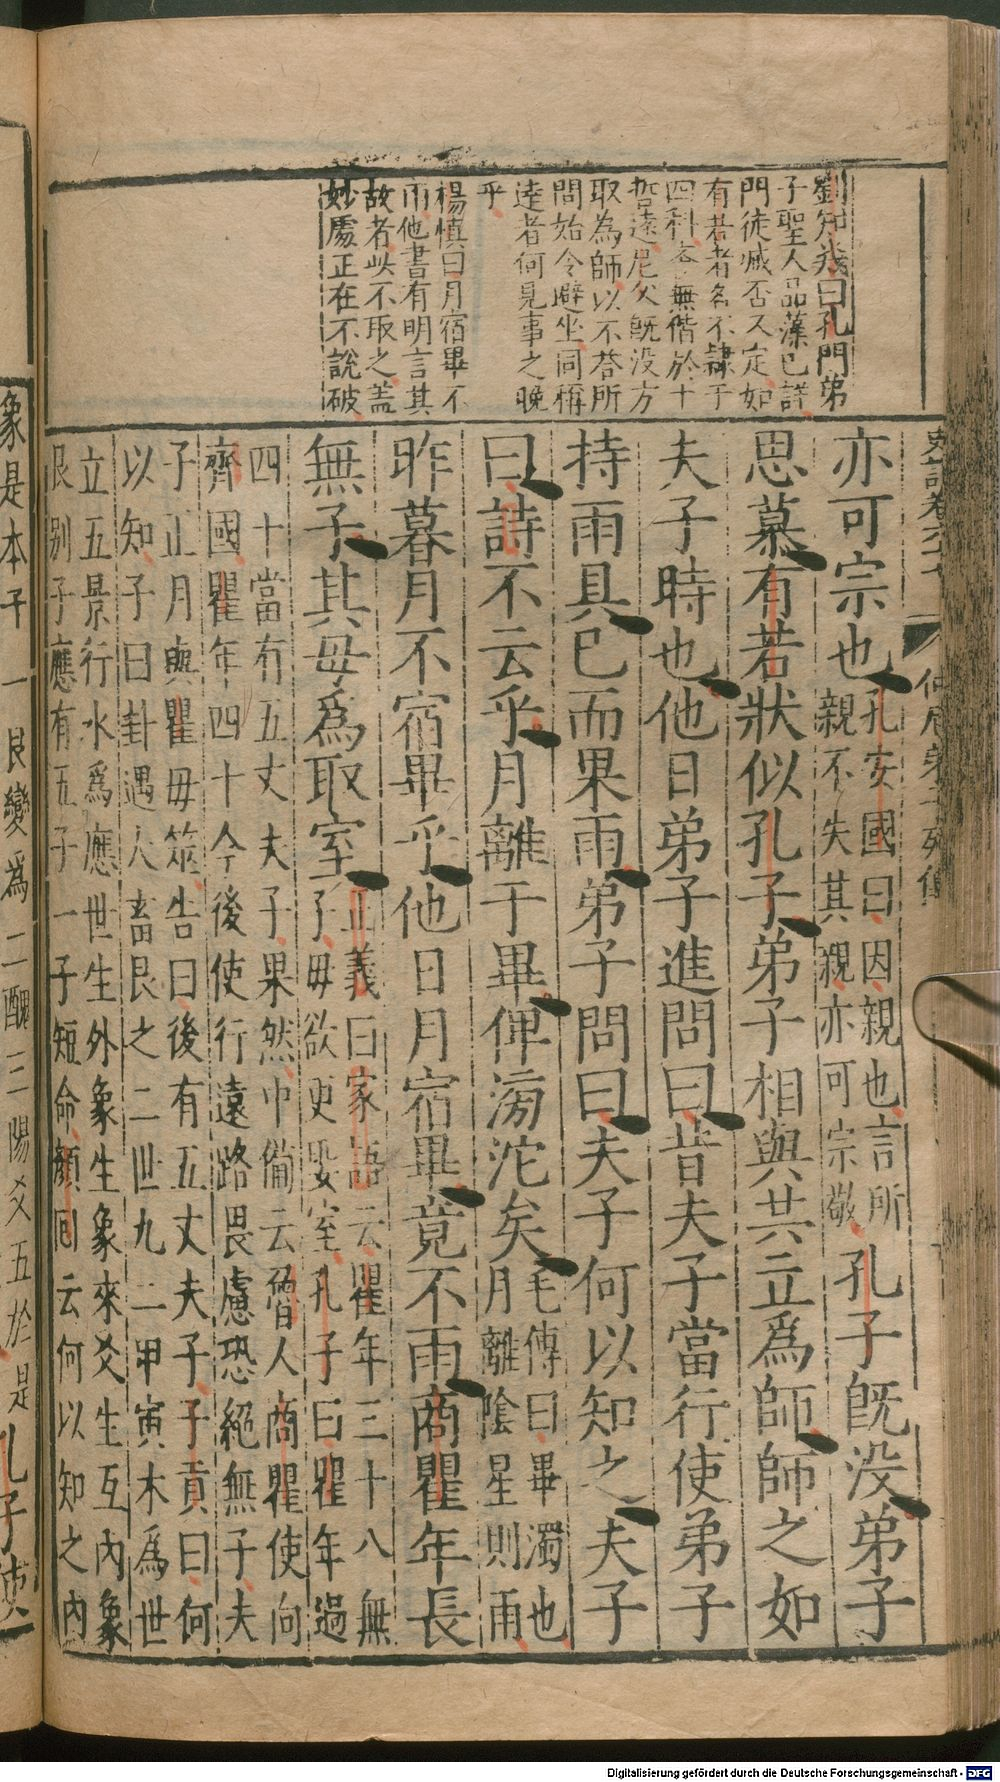 劉知幾曰孔門弟
子聖人品藻已詳
門徒臧否又定如
有若者名不隷于
四科 無偕於十
哲逮尼父既没方
取為師以不荅所
問始令避坐同稱
達者何見事之晚
乎
楊慎曰月宿畢不
雨他書有明言其
故者此不取之盖
妙處正在不說破
史記卷六十 仲尼弟子列傳
亦可宗也
孔安國曰因親也言所
親不失其親亦可宗敬
孔子既没弟子
思慕有若狀似孔子弟子相與共立爲師師之如
夫子時也他日弟子進問曰昔夫子當行使弟子
持雨具已而果雨弟子問曰夫子何以知之夫子
曰詩不云乎月離于畢俾滂沱矣
毛傳曰畢濁也
月離陰星則雨
昨暮月不宿畢乎他日月宿畢竟不雨商瞿年長
無子其母爲取室
正義曰家語云瞿年三十八無
子母欲更娶室孔子曰瞿年過
四十當有五丈夫子果然中備云魯人商瞿使向
齊國瞿年四十今後使行遠路畏慮恐絕無子夫
子正月與瞿母筮告曰後有五丈夫子子貢曰何
以知子曰卦遇大畜艮之二世九二甲寅木爲世
立五景行水爲應世生外象生象來爻生互內象
艮别子應有五子一子短命顔回云何以知之內
象是本子一艮變爲二醜三陽爻五於是孔子使
Digitalisierung gefördert durch die Deutsche Forschungsgemeinschaft - DFG